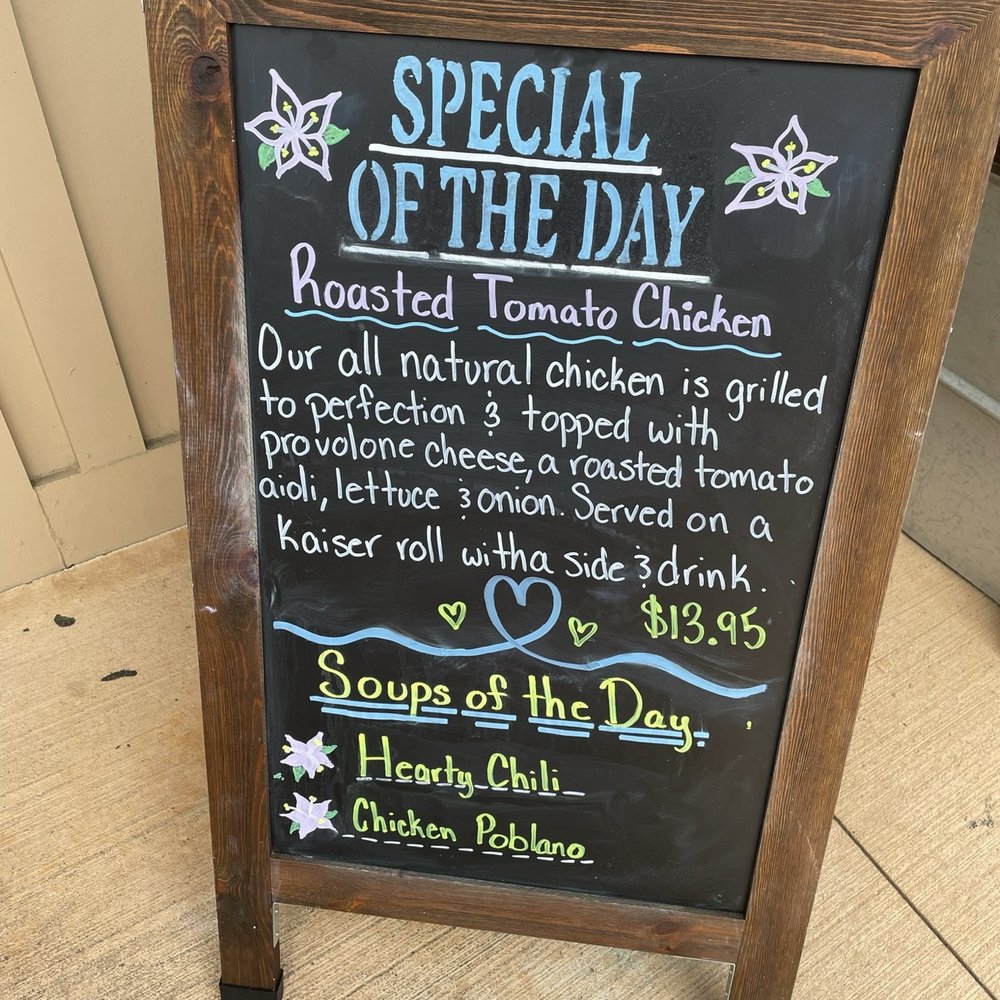 SPECIAL
OF THE DAY
Roasted Tomato Chicken
Our all natural chicken is grilled
to perfection & topped with
provolone cheese, a roasted tomato
aioli, lettuce & onion. Served on a
Kaiser roll with a side & drink.
$13.95
Soups of the Day
Hearty Chili
Chicken Poblano